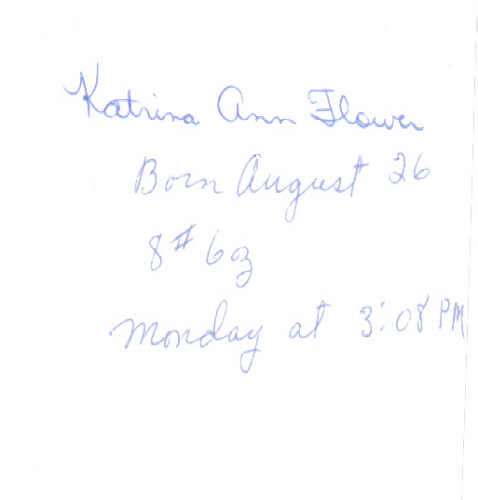 Katrina Ann Flower
Born August 26
8# 6oz
Monday at 3:08 PM